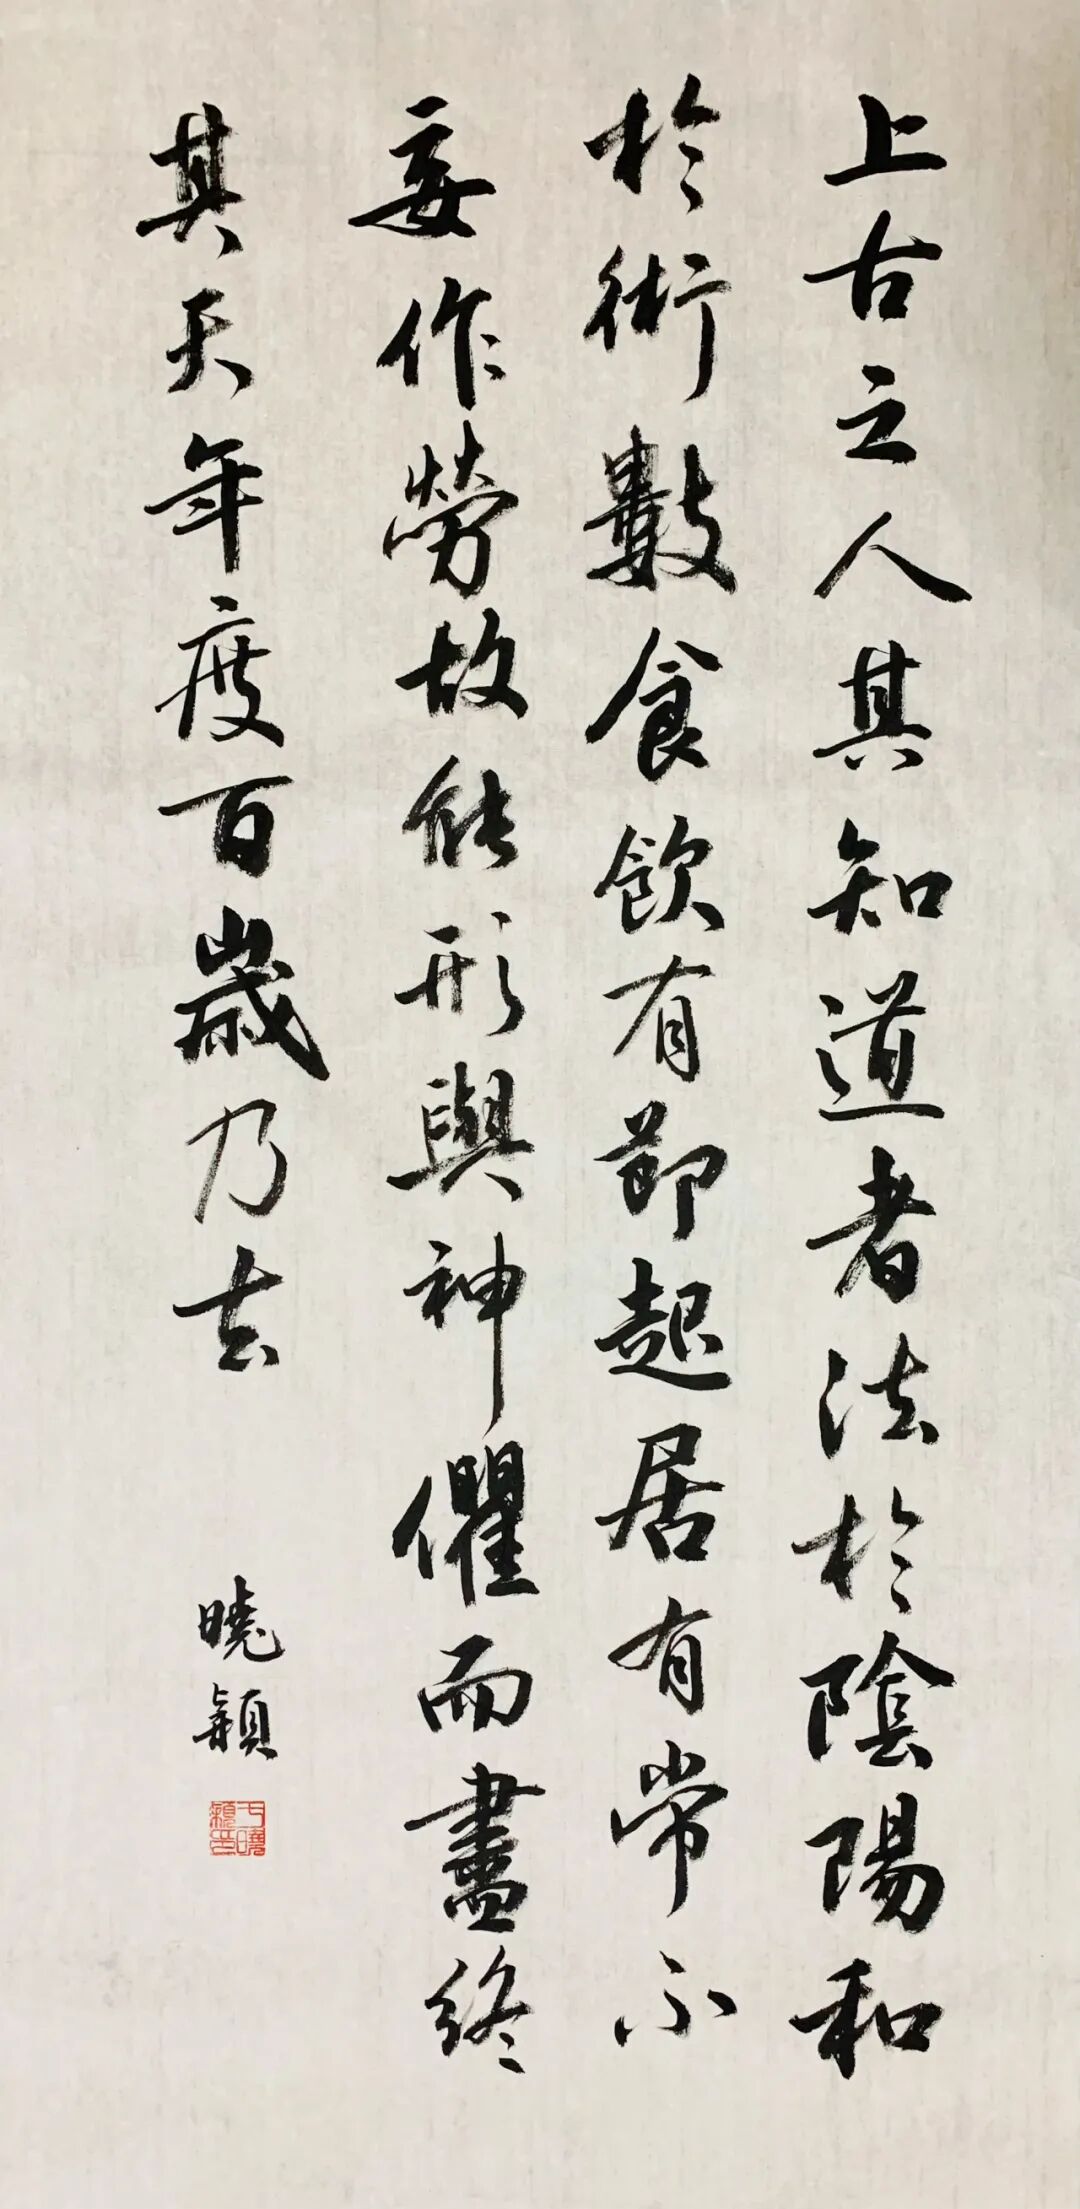 上古之人其知道者法於陰陽和
於術數食飲有節起居有常不
妄作勞故能形與神俱而盡終
其天年度百歲乃去
曉穎